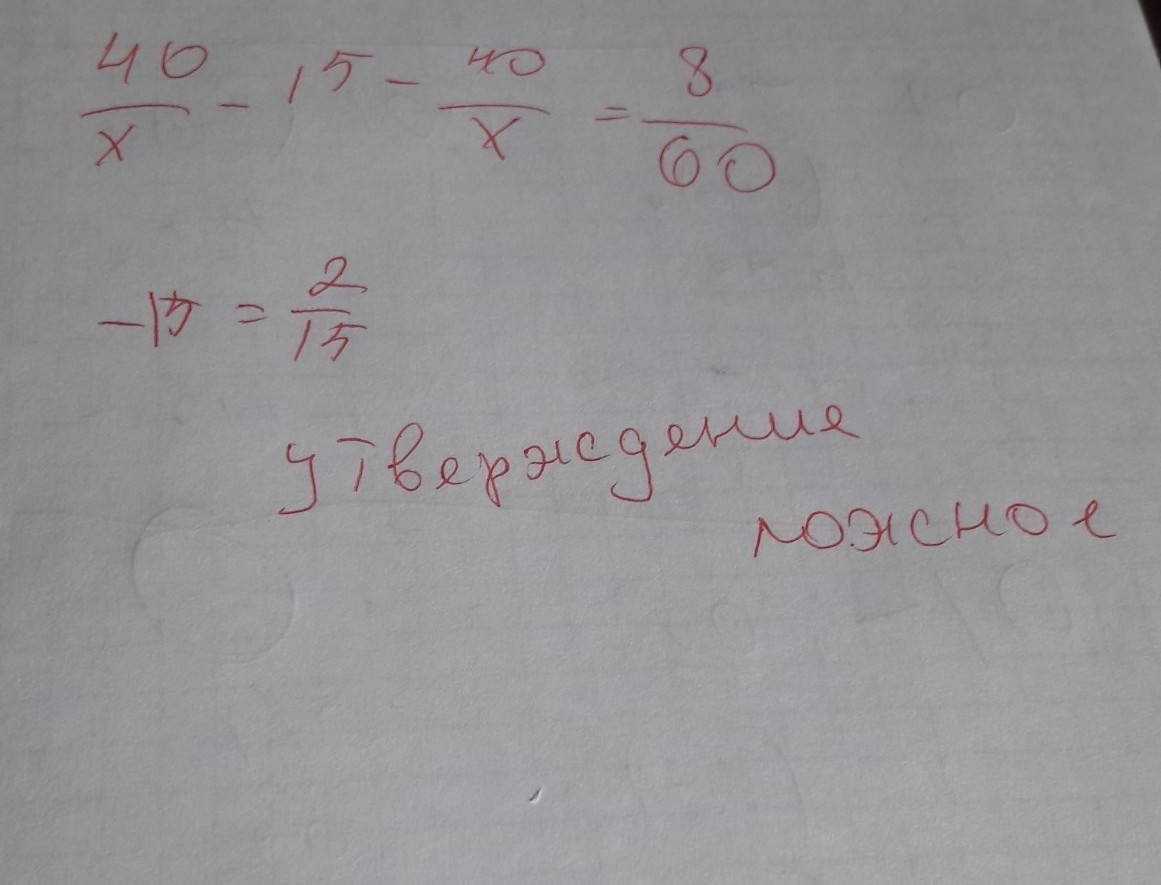 40/x - 15 - 40/x = 8/60
-15 = 2/15
утверждение
ложное